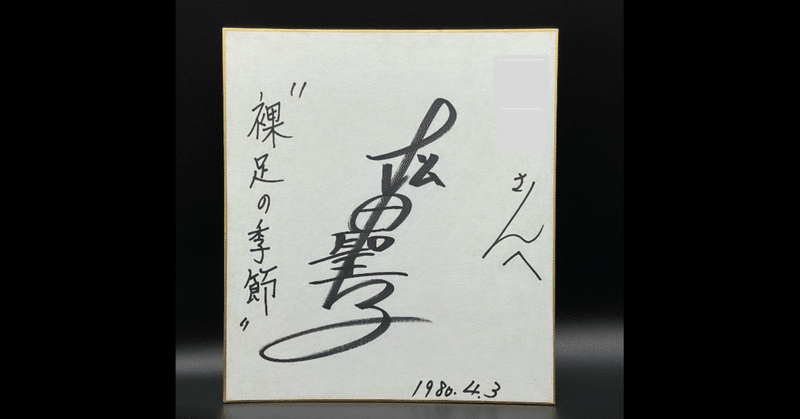 さんへ
松田聖子
"裸足の季節"
1980.4.3